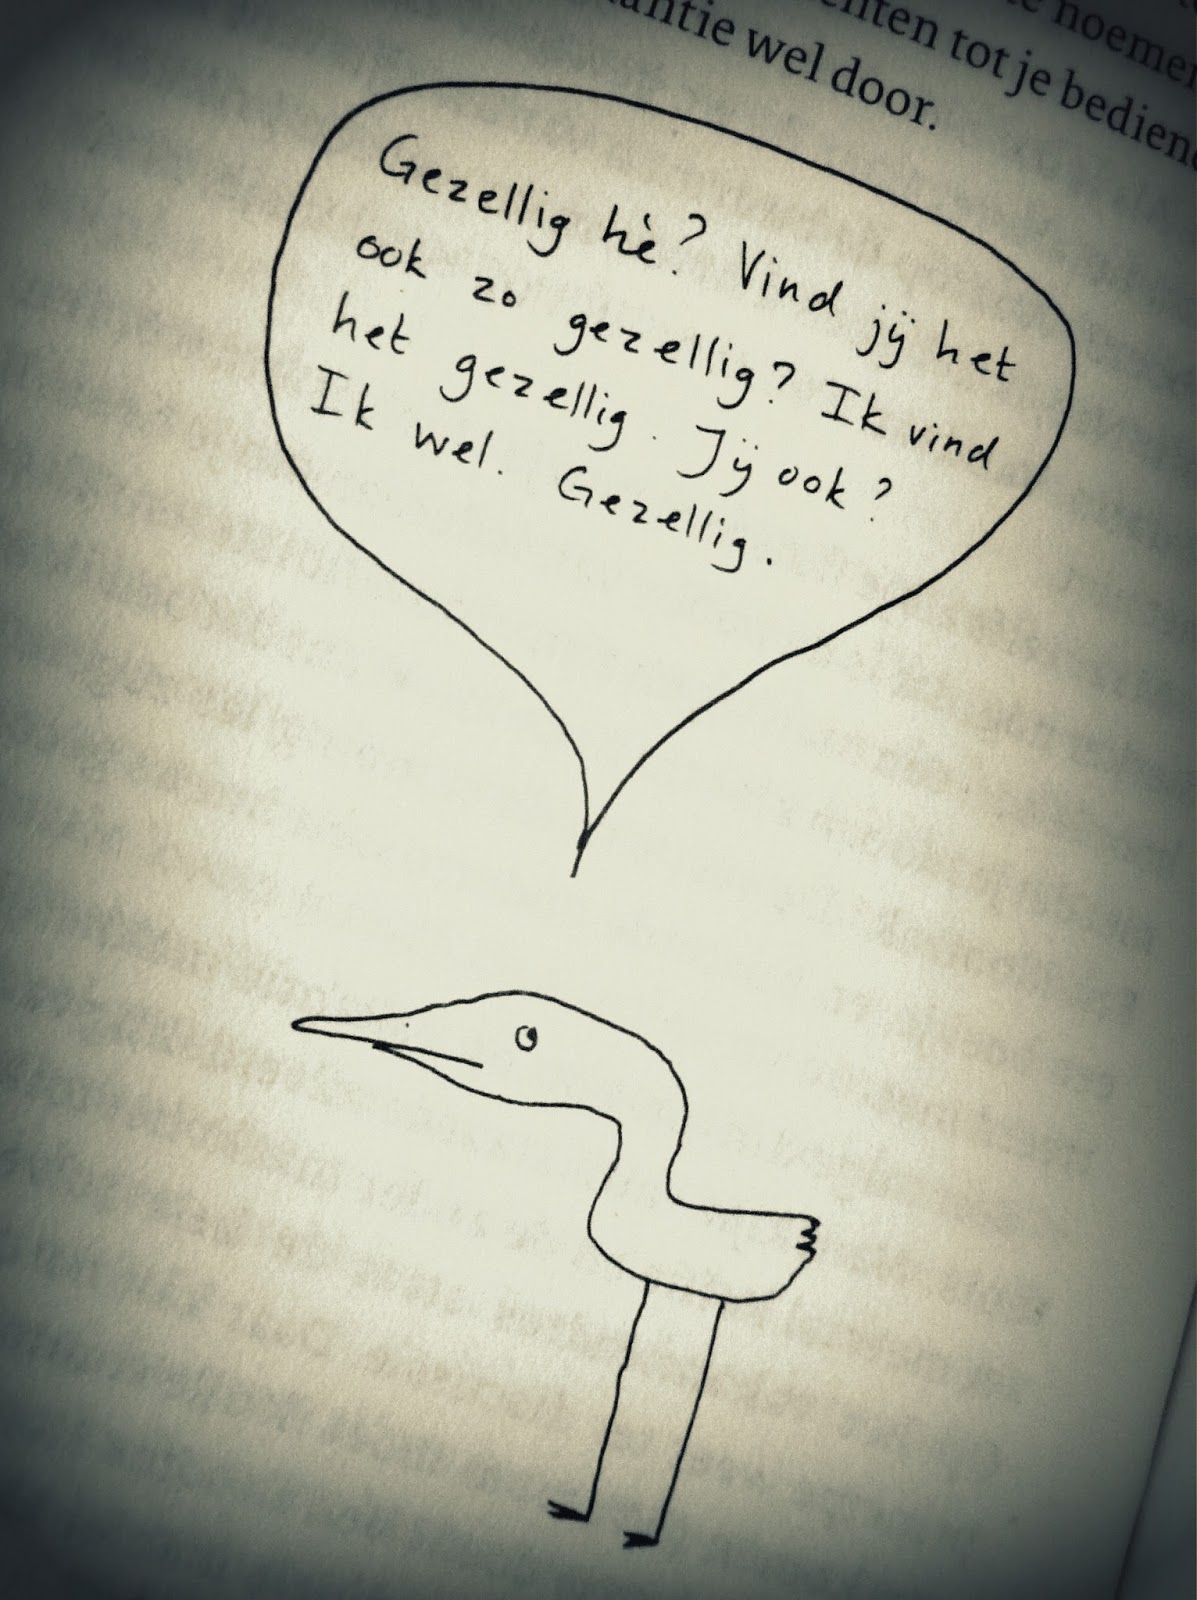 noemen
tot je
wel door.
Gezellig hè? Vind jij het
ook zo gezellig? Ik vind
het gezellig. Jij ook?
Ik wel. Gezellig.